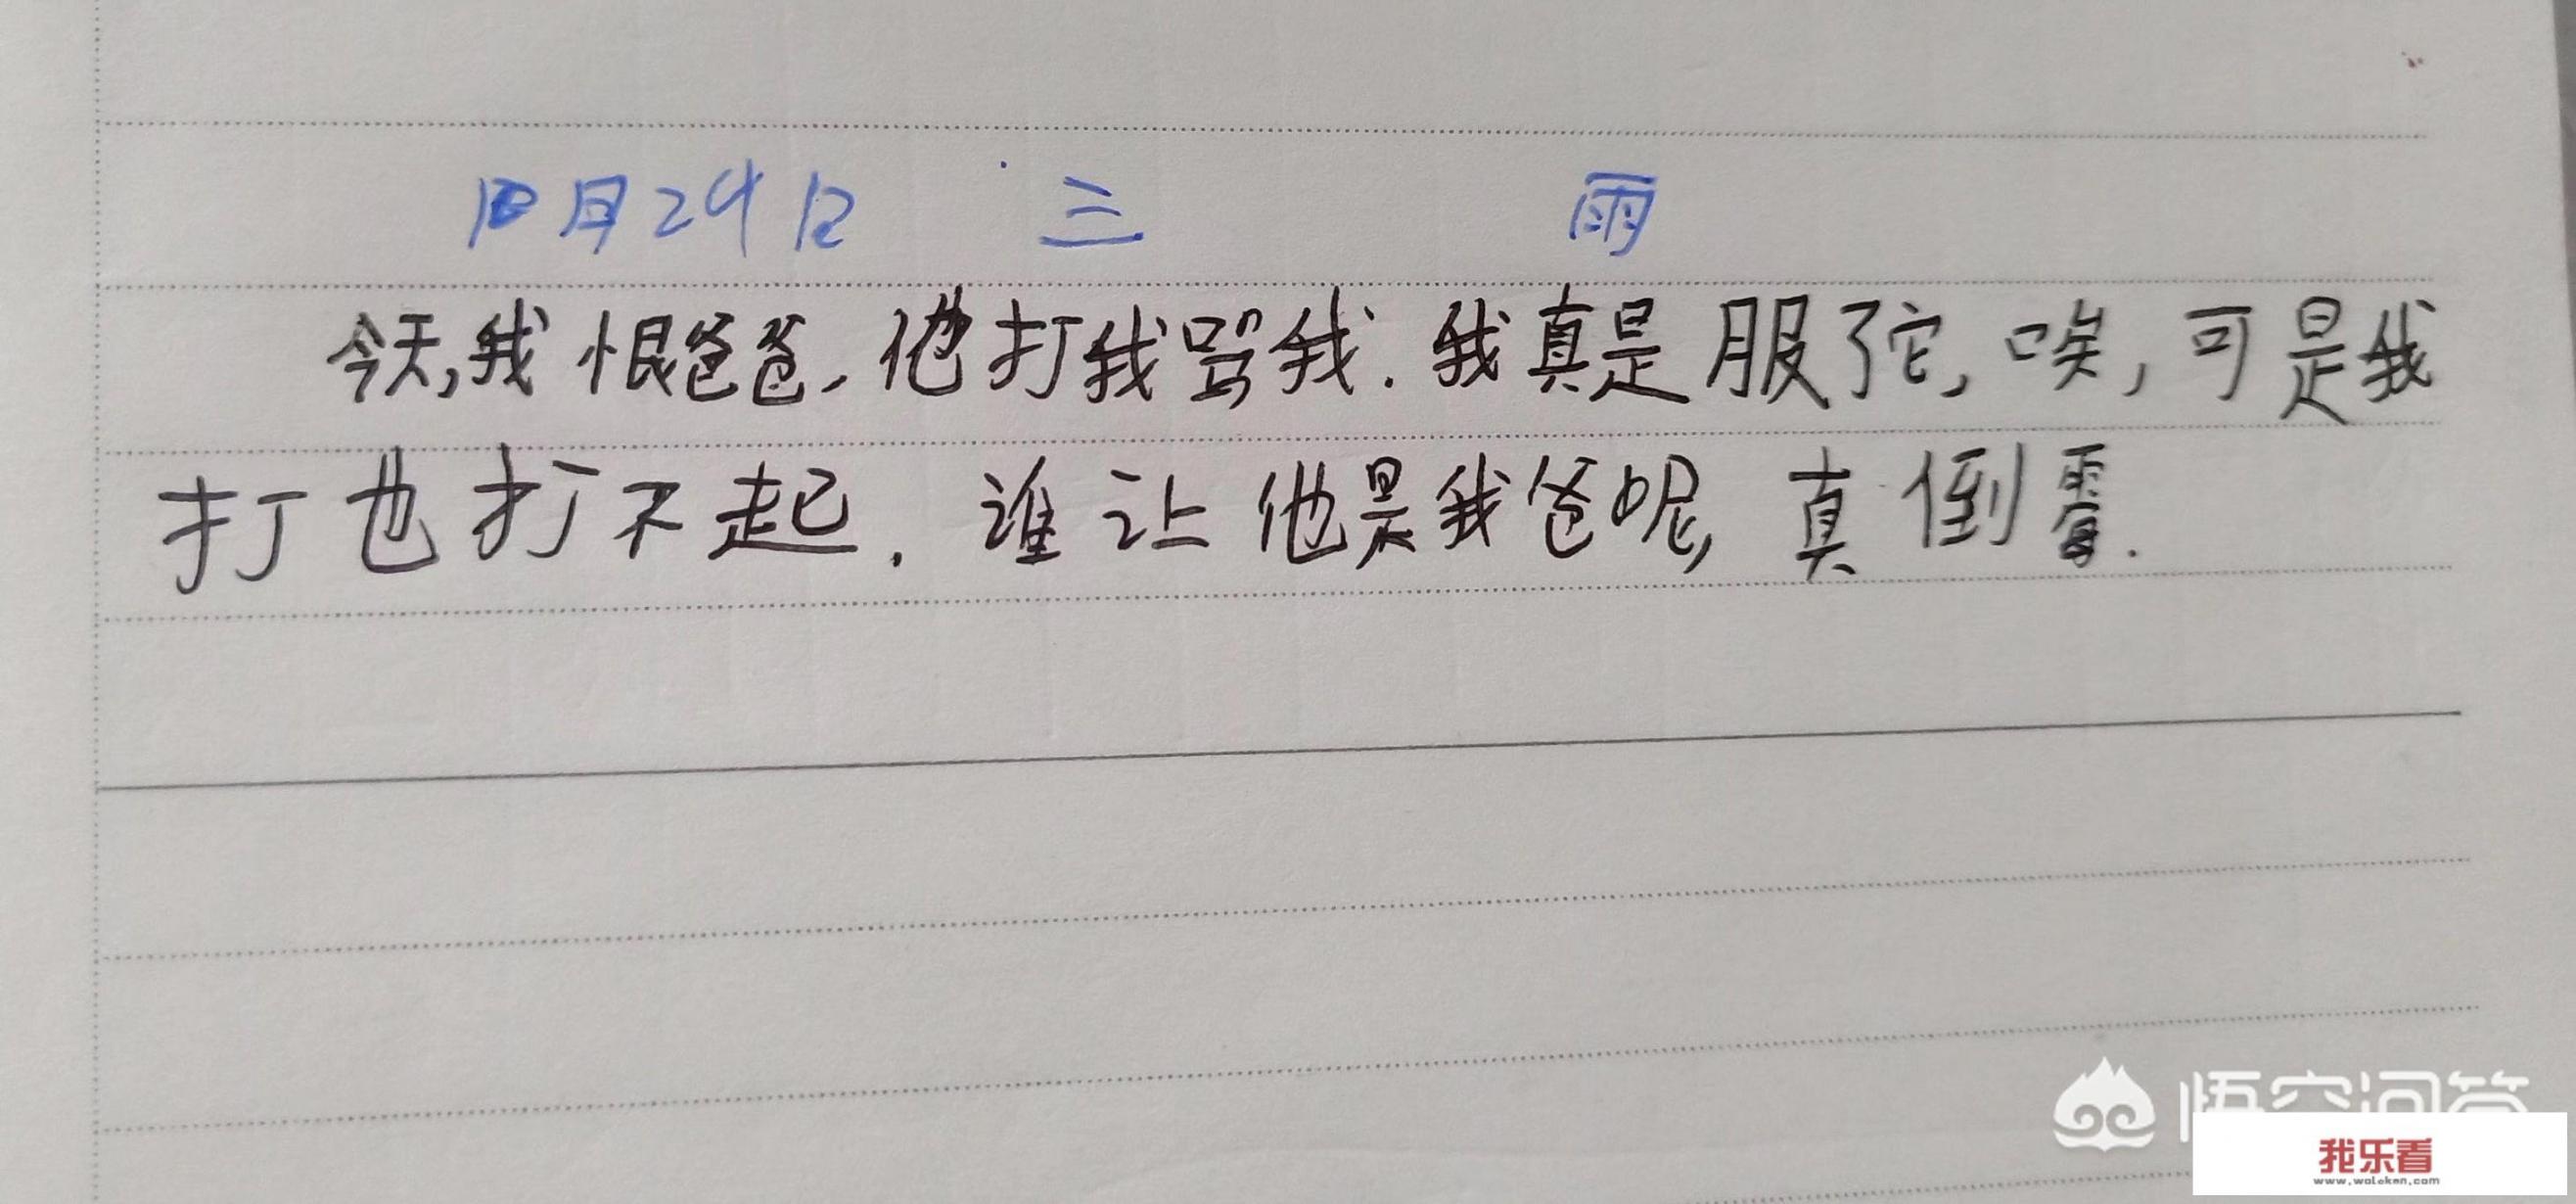 10月29日 三 雨
今天,我恨爸爸,他打我骂我.我真是服了它,唉,可是我
打也打不起.谁让他是我爸呢,真倒霉.
悟空问答
我乐看
www.woleken.com